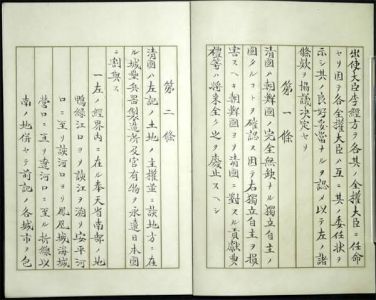 出使大臣李經方ヲ各其ノ全權大臣ニ任命
セリ因テ各全權大臣ハ互ニ其ノ委任狀ヲ
示シ其ノ良好妥當ナルヲ認メ以テ左ノ諸
條款ヲ協議決定セリ
第一條
清國ハ朝鮮國ノ完全無缺ナル獨立自主ノ
國タルコトヲ確認ス因テ右獨立自主ヲ損
害スヘキ朝鮮國ヨリ清國ニ對スル貢獻典
禮等ハ將來全ク之ヲ廢止スヘシ
第二條
清國ハ左記ノ土地ノ主權竝ニ該地方ニ在
ル城壘兵器製造所及官有物ヲ永遠日本國
ニ割與ス
一左ノ經界內ニ在ル奉天省南部ノ地
鴨綠江口ヨリ該江ヲ溯リ安平河
口ニ至リ該河口ヨリ鳳凰城海城
營口ニ亙リ遼河口ニ至ル折線以
南ノ地併セテ前記ノ各城市ヲ包